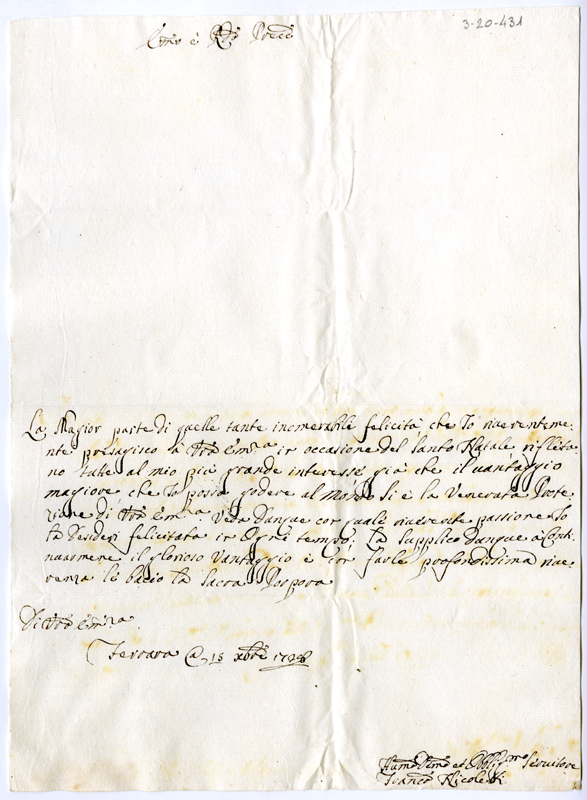 3-20-431
Emo è Rmo Prne
La Magior parte di quelle tante inomerabile felicità, che Io riverenteme:
nte presagisco à Vrâ Emza in occasione del Santo Natale, rifleta:
no tutte al mio più grande interesse già che il vantaggio
magiore che Io possa godere al Mondo Si è la Venerata Prote
zione di Vrâ Emza. Veda dunque con quale riverente passione Io
la desideri felicitata in Ogni tempo; La Supplico dunque à Conti:
nuarmene il glorioso Vantaggio è con farle profondissima rive
renza le bacio la Sacra Porpora
Di Vrâ Emza.
Ferrara @ 18 xbre
Humo Devmo et Obligmo Servitore